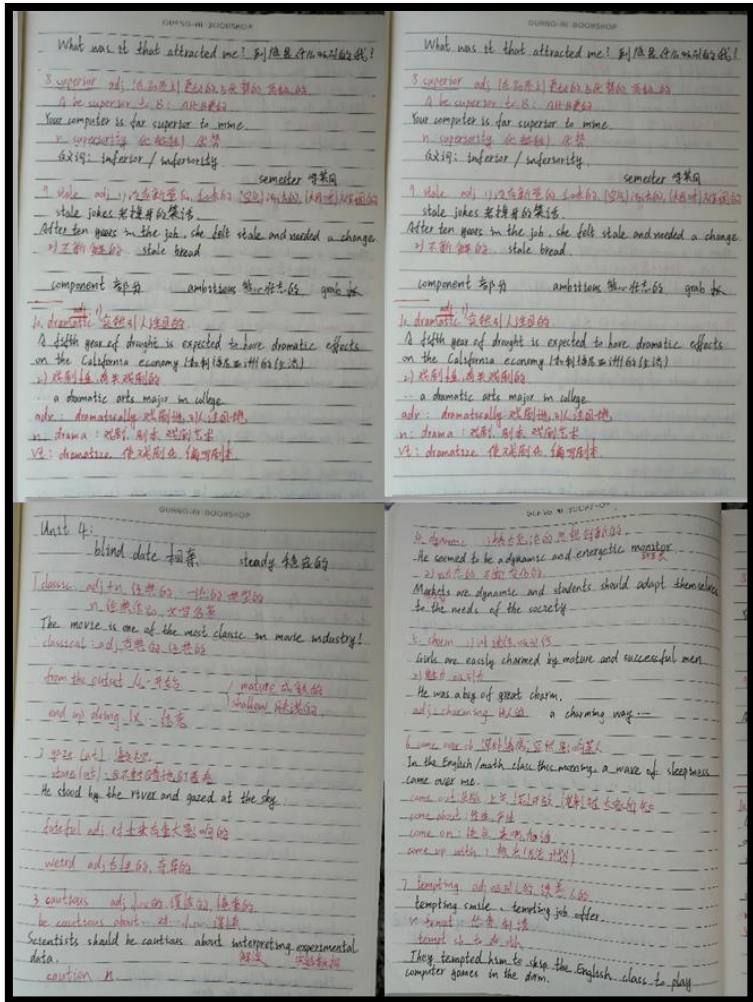 GUANG-HI BOOKSHOP
What was it that attracted me? 到底是什么吸引的我!
8. superior adj.
A be superior to B: A比B更好
Your computer is far superior to mine.
n. superiority 优势
反义词: inferior / inferiority.
semester 学期
9. stale adj. 1)
stale jokes 老掉牙的笑话
After ten years in the job, she felt stale and needed a change
2) 不新鲜的 stale bread
component 部分 ambitious 雄心壮志的 grab
adj. 1)
10. dramatic 突然引人注目的
A fifth year of drought is expected to have dramatic effects
on the California economy (加利福尼亚州的经济)
2) 戏剧性, 有关戏剧的
... a dramatic arts major in college
adv: dramatically 戏剧地, 引人注目地
n: drama: 戏剧, 剧本, 戏剧艺术
vt: dramatize 使戏剧化, 编写剧本
GUANG-HI BOOKSHOP
What was it that attracted me? 到底是什么吸引的我!
8. superior adj.
A be superior to B: A比B更好
Your computer is far superior to mine.
n. superiority 优势
反义词: inferior / inferiority.
semester 学期
9. stale adj. 1)
stale jokes 老掉牙的笑话
After ten years in the job, she felt stale and needed a change
2) 不新鲜的 stale bread
component 部分 ambitious 雄心壮志的 grab
adj. 1)
10. dramatic 突然引人注目的
A fifth year of drought is expected to have dramatic effects
on the California economy (加利福尼亚州的经济)
2) 戏剧性, 有关戏剧的
... a dramatic arts major in college
adv: dramatically 戏剧地, 引人注目地
n: drama: 戏剧, 剧本, 戏剧艺术
vt: dramatize 使戏剧化, 编写剧本
GUANG-HI BOOKSHOP
Unit 4:
blind date 相亲 steady 稳定的
1. classic adj+n 经典的 一流的 典型的
n. 经典作品, 文学名著
The movie is one of the most classic in movie industry!
classical: adj 古典的, 经典的
from the outset 从一开始 / mature 成熟的
shallow 肤浅的
end up doing 以...结束
2. gaze (at) 凝视
stare (at)
He stood by the river and gazed at the sky.
fateful adj. 对未来有重大影响的
weird adj. 古怪的, 奇异的
3. cautious adj 小心的, 谨慎的
be cautious about 对...小心 谨慎
Scientists should be cautious about interpreting experimental
data. 解读 实验数据
caution n.
GUANG-HI BOOKSHOP
He seemed to be a dynamic and energetic monitor.
2) 动态的 不断变化的
Markets are dynamic and students should adapt themselves
to the needs of the society.
5. charm
Girls are easily charmed by mature and successful men.
2) 魅力 吸引力
He was a boy of great charm.
adj: charming 迷人的 a charming way ...
6. come over sb
In the English/math class this morning, a wave of sleepiness
came over me.
come out:
come about: 发生, 产生
come on:
come up with: 提出 (方法 计划)
7. tempting adj. 吸引人的 诱惑人的
tempting smile, tempting job offer.
v. tempt
tempt sb to do sth
They tempted him to skip the English class to play
computer games in the dorm.